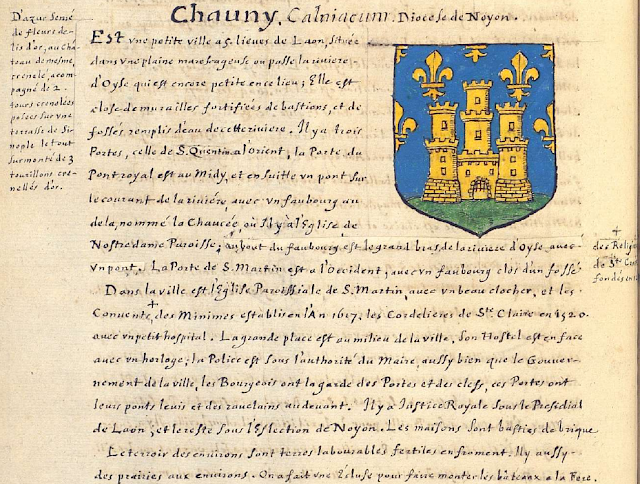 Chauny, Calniacum. Diocese de Noyon.
D'azur Semé
de fleurs de-
lis d'or, au Châ
teau de mesme,
crenelé, acom
pagné de 2
tours crenelées
posées sur vne
terrasse de Si
nople le tout
surmonté de 3
tourillons cre
nellés d'or.
Est vne petite ville a 5. lieues de Laon, située
dans vne plaine marescageuse ou passe la riviere
d'Oyse qui est encore petite en ce lieu; Elle est
close de murailles fortifiées de bastions, et de
fossés remplis d'eau de cette riviere. Il y a trois
Portes, celle de S. Quentin a l'orient, la Porte du
Pont royal est au Midy, et en suitte vn pont sur
le courant de la riviére avec vn faubourg au
de la, nommé la Chaucée, où Il y a l'Eglise de
Nostre dame Paroisse; au bout du faubourg est le grand bras de la riviere d'Oyse avec
vn pont. La Porte de S. Martin est a l'Occident, avec vn faubourg clos d'un fossé
+
des Religi
de Ste
fondés en
Dans la ville est l'Eglise Paroissiale de S. Martin, avec vn beau clocher, et les
+
Convents, des Minimes establis en l'An 1617. les Cordelieres de Ste. Claire en 1520.
avec vn petit hospital. La grande place est au milieu de la ville, son Hostel est en face
avec vn horloge; la Police est sous l'authorité du Maire, aussy bien que le Gouver-
nement de la ville, les Bourgeois ont la garde des Portes et des clefs, ces Portes ont
leurs ponts levis et des ravelains au devant. Il y a Justice Royale sous le Presidial
de Laon, et le reste sous l'Eslection de Noyon. Les maisons sont basties de brique
Le terroir des environs sont terres labourables fertiles en froment. Il y a aussy
des prairies aux environs. On a fait vne Escluse pour faire monter les bateaux a la Fere.